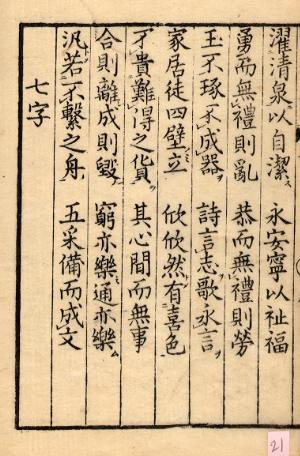 濯清泉以自潔 永安寧以祉福
勇而無禮則亂 恭而無禮則勞
玉不琢不成器 詩言志歌永言
家居徒四壁立 欣欣然有喜色
不貴難得之貨 其心間而無事
合則離成則毀 窮亦樂通亦樂
汎若不繫之舟 五采備而成文
七字
21